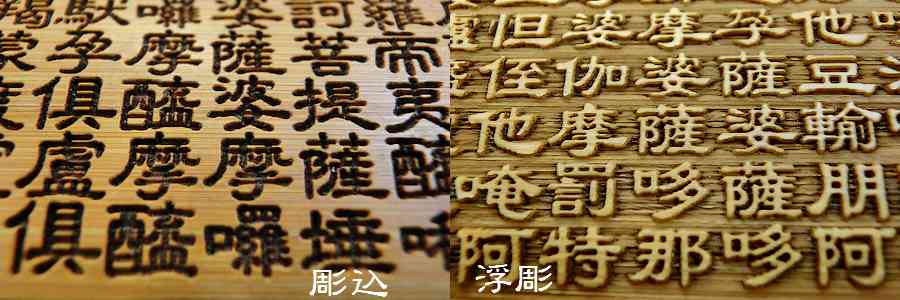 羅帝夷醯
訶菩提薩埵
婆薩婆摩囉
囉摩醯摩醯
馱孕俱盧俱
羯蒙
彫込
他豆輸朋阿
孕薩婆薩哆
摩婆薩哆那
婆伽摩罰特
但侄他唵阿
浮彫